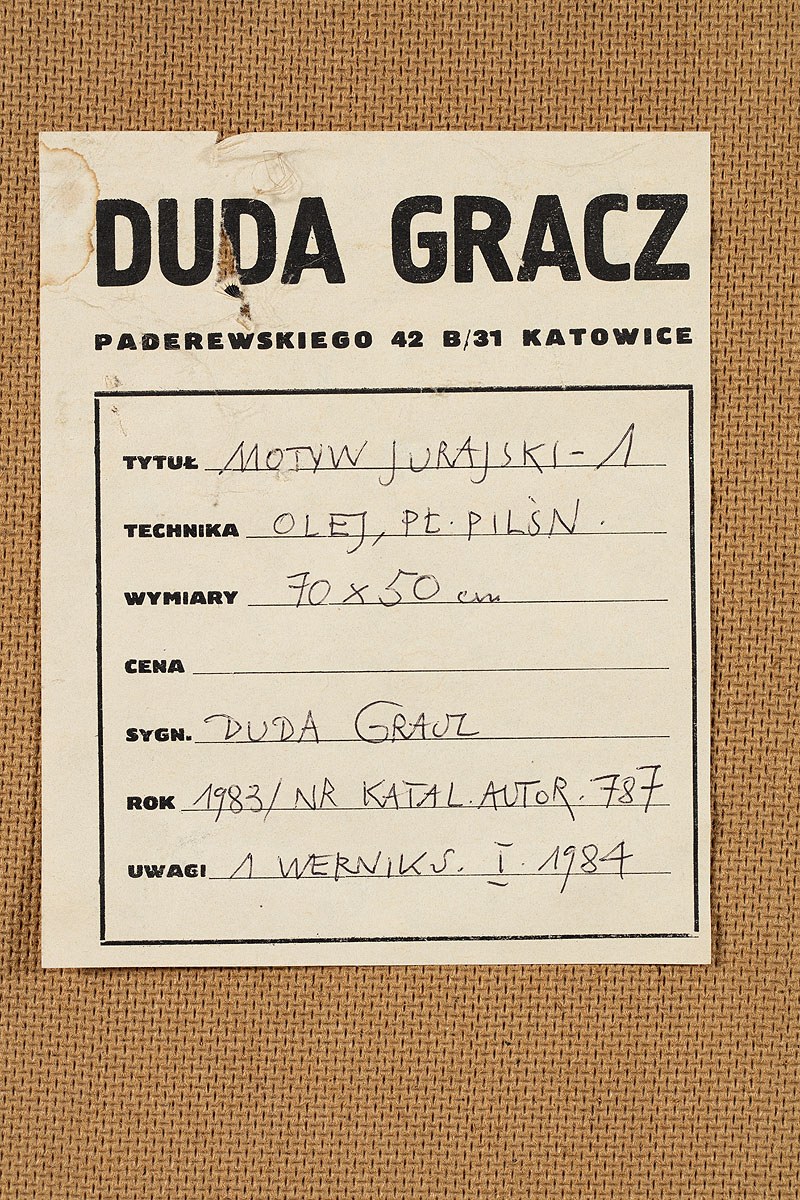 DUDA GRACZ
PADEREWSKIEGO 42 B/31 KATOWICE
TYTUŁ MOTYW JURAJSKI - 1
TECHNIKA OLEJ, PŁ. PILŚN.
WYMIARY 70 x 50 cm
CENA
SYGN. DUDA GRACZ
ROK 1983/ NR KATAL. AUTOR. 787
UWAGI 1 WERNIKS. I. 1984